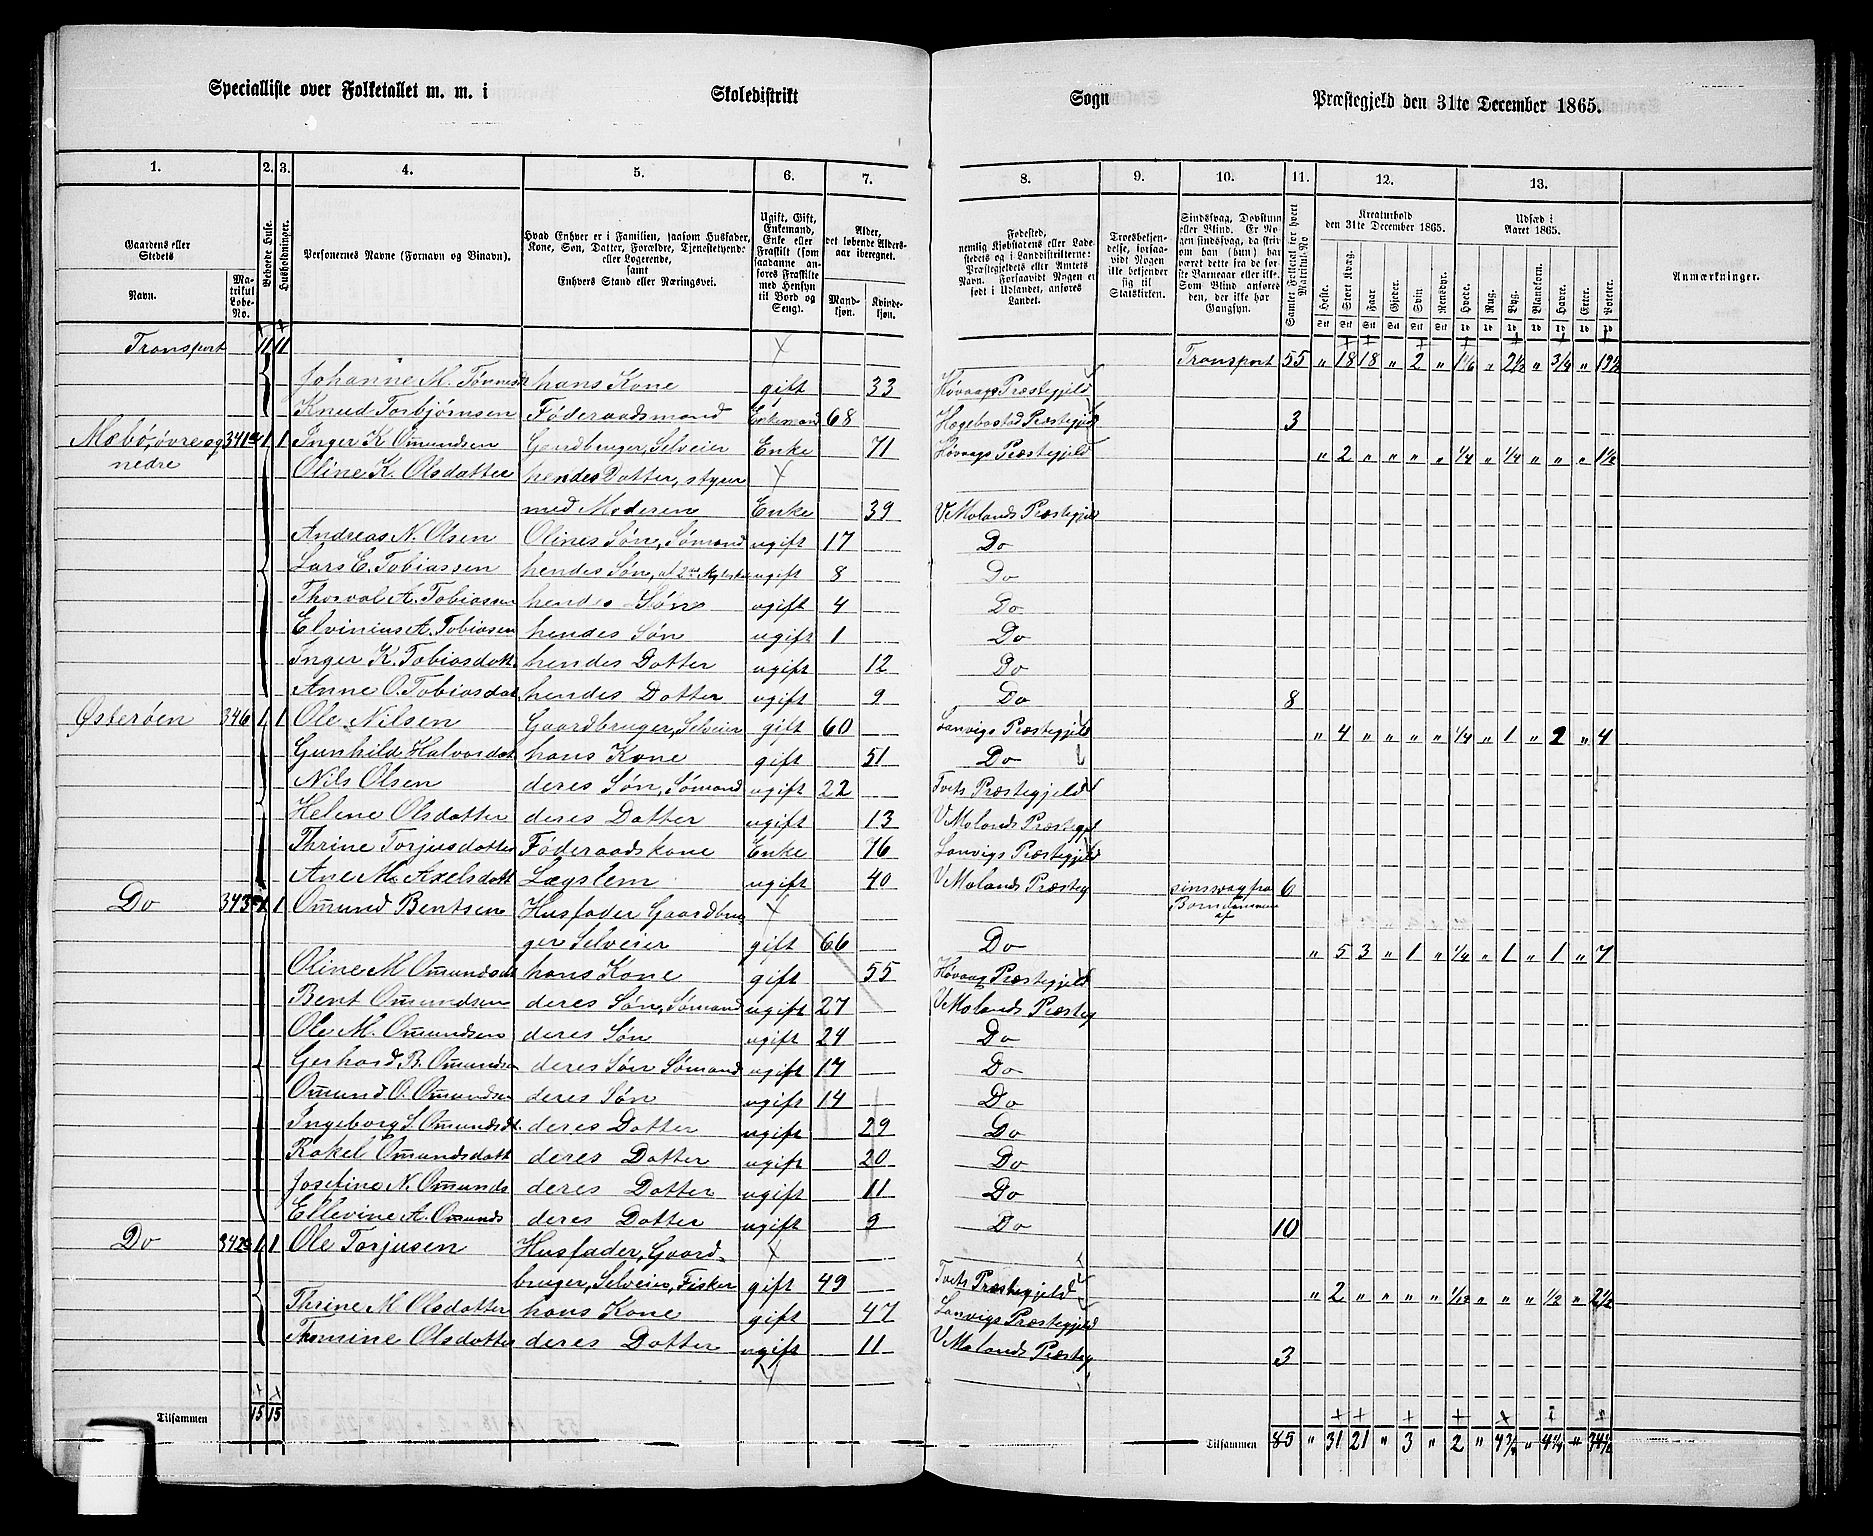 Specialliste over Folketallet m. m. i Skoledistrikt Sogn Præstegjeld den 31te December 1865.
1. 2. 3. 4. 5. 6. 7. 8. 9. 10. 11. 12. 13.
Gaardens eller Stedets Navn. Matrikul Løbe-No. Beboede Huse. Husholdninger. Personernes Navne (Fornavn og Tilnavn). Hvad Enhver er i Familien, saasom Husfader, Kone, Søn, Datter, Forældre, Tjenestetyende eller Logerende, samt Enhvers Stand eller Næringsvei. Ugift, Gift, Enkemand, Enke eller Fraskilt (som saadanne anføres Fraskilte med Hensyn til Bord og Seng). Alder, det løbende Alders-aar iberegnet. Mandkjøn. Kvindekjøn.
Fødested, nemlig Kjøbstadens eller Ladestedets og i Landdistrikterne: Præstegjeldets eller Amtets Navn. Forsaavidt Nogen er født i Udlandet, anføres Landet. Troesbekjendelse, forsaavidt Nogen ikke bekjender sig til Statskirken. Samlet Folketal for hvert Matrikul-No Kreaturhold den 31te December 1865. Heste. Stort Kvæg. Faar Gjeder. Svin. Rensdyr. Udsæd i Aaret 1865. Hvede. Rug. Byg. Blandkorn. Havre. Erter. Poteter. Anmærkninger.
Transport 11 11 Transport 55 " 18 18 " 2 " 1 1/6 " 2 1/2 " 3/4 " 19 1/2
Johanne M. Tønnesdt hans Kone gift 33 Høvaags Præstegjeld
Knud Torbjørnsen Føderaadsmand Enkemand 68 Hægebostad Præstegjeld 3
Mæbø, øvre og nedre 341 1 1 Inger K. Omundsen Gaardbruger, Selveier Enke 71 Høvaags Præstegjeld " 2 " " " " 1/4 " 1/4 " " " 1 1/2
Oline K. Olsdatter hendes Datter, styrer
med Moderen Enke 39 V Molands Præstegjeld
Andreas N. Olsen Olines Søn, Sømand ugift 17 Do
Lars E. Tobiassen hendes Søn, af 2det Ægteskab ugift 8 Do
Thorval A. Tobiasen hendes Søn ugift 4 Do
Elvinius A. Tobiasen hendes Søn ugift 1 Do
Inger K. Tobiasdatt. hendes Datter ugift 12 Do
Anne O. Tobiasdat hendes Datter ugift 9 Do 8
Østerøen 346 1 1 Ole Nilsen Gaardbruger, Selveier gift 60 Lanvigs Præstegjeld " 4 " " " " 1/4 " 1 " 2 " 4
Gunhild Halvorsdat hans Kone gift 51 Do
Nils Olsen deres Søn, Sømand ugift 22 Tvets Præstegjeld
Helene Olsdatter deres Datter ugift 13 V Molands Præstegjel
Thrine Torjusdatter Føderaadskone Enke 76 Lanvigs Præstegjeld
Ane M. Axelsdatt Lægslem ugift 40 V Molands Præsteg sinsvag fra Barndommen af 6
Do 343 1 1 Omund Bentsen Husfader Gaardbru
ger Selveier gift 66 Do " 5 3 " 1 " 1/4 " 1 " 1 " 7
Oline M Omundsdt hans Kone gift 55 Høvaag Præstegjeld
Bent Omundsen deres Søn, Sømand ugift 27 V Molands Præsteg
Ole M. Omundsen deres Søn ugift 24 Do
Gerhard B. Omundsen deres Søn Sømand ugift 17 Do
Omund O. Omundsen deres Søn ugift 14 Do
Ingeborg S. Omundsdt. deres Datter ugift 29 Do
Rakel Omundsdatt deres Datter ugift 20 Do
Josefine N. Omunds deres Datter ugift 11 Do
Ellevine A. Omunds deres Datter ugift 9 Do 10
Do 342 1 1 Ole Torjusen Husfader, Gaard-
bruger, Selveier, Fisker gift 49 Tvets Præstegjeld " 2 " " " " 1/12 " " " 1/2 " 2 1/2
Thrine M Olsdatter hans Kone gift 47 Lanvigs Præstegjeld
Thomine Olsdatter deres Datter ugift 11 V Molands Præsteg 3
Tilsammen 15 15 Tilsammen 85 " 31 21 " 3 " 2 " 4 3/4 " 4 1/4 " 34 1/2